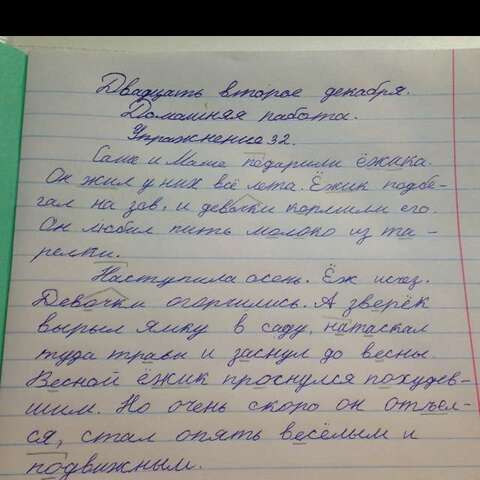 Двадцать второе декабря.
Домашняя работа.
Упражнение 32.
Саше и Маше подарили ёжика.
Он жил у них всё лето. Ёжик подбе-
гал на зов, и девочки кормили его.
Он любил пить молоко из та-
релки.
Наступила осень. Ёж исчез.
Девочки огорчились. А зверёк
вырыл ямку в саду, натаскал
туда травы и заснул до весны.
Весной ёжик проснулся похудев-
шим. Но очень скоро он отъел-
ся, стал опять весёлым и
подвижным.